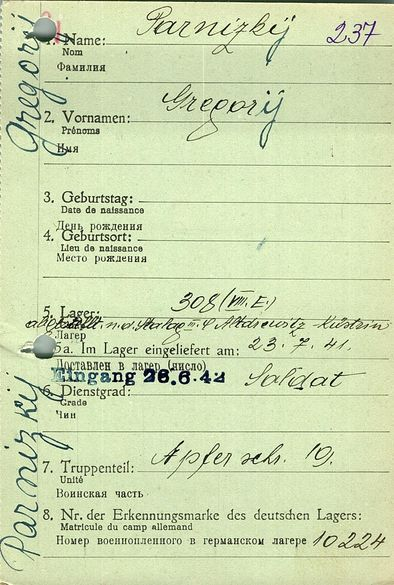 Gregorij
Parnizkij
237
1. Name: Parnizkij
Nom
Фамилия
2. Vornamen: Gregorij
Prénoms
Имя
3. Geburtstag:
Date de naissance
День рождения
4. Geburtsort:
Lieu de naissance
Место рождения
5. Lager: 308 (VIII. E.)
n. d. Stalag III C
Küstrin
Лагер
5a. Im Lager eingeliefert am: 23. 7. 41.
Доставлен в лагер (число)
Eingang 26.6.42
Soldat
6. Dienstgrad:
Grade
Чин
7. Truppenteil:
Unité
Воинская часть
8. Nr. der Erkennungsmarke des deutschen Lagers:
Matricule du camp allemand
Номер военнопленного в германском лагере 10224
Parnizkij